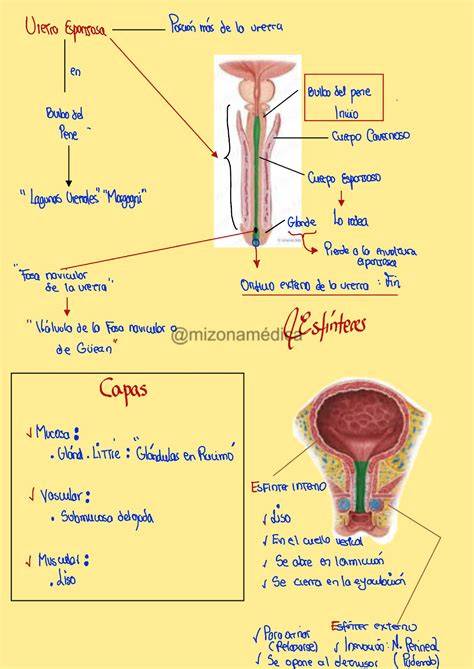 Uretra Esponjosa
Porción más de la uretra
en
Bulbo del
Pene
"Lagunas Uretrales" "Morgagni"
Bulbo del pene
Inicio
Cuerpo Cavernoso
Cuerpo Esponjoso
Glande
Lo rodea
Pierde a la envoltura
esponjosa
Orificio externo de la uretra : Fin
"Fosa navicular
de la uretra"
"Válvula de la Fosa navicular o
de Güerin"
@mizonamédica
Esfínteres
Capas
Mucosa :
. Gland. Littre : "Glándulas en Racimo"
Vascular :
. Submucosa delgada
Muscular :
. Liso
Esfínter interno
Liso
En el cuello vesical
Se abre en la micción
Se cierra en la eyaculación
Esfínter externo
Para orinar
(Relajarse)
Se opone al detrusor
Inervación : N. Perineal
(Pudendo)